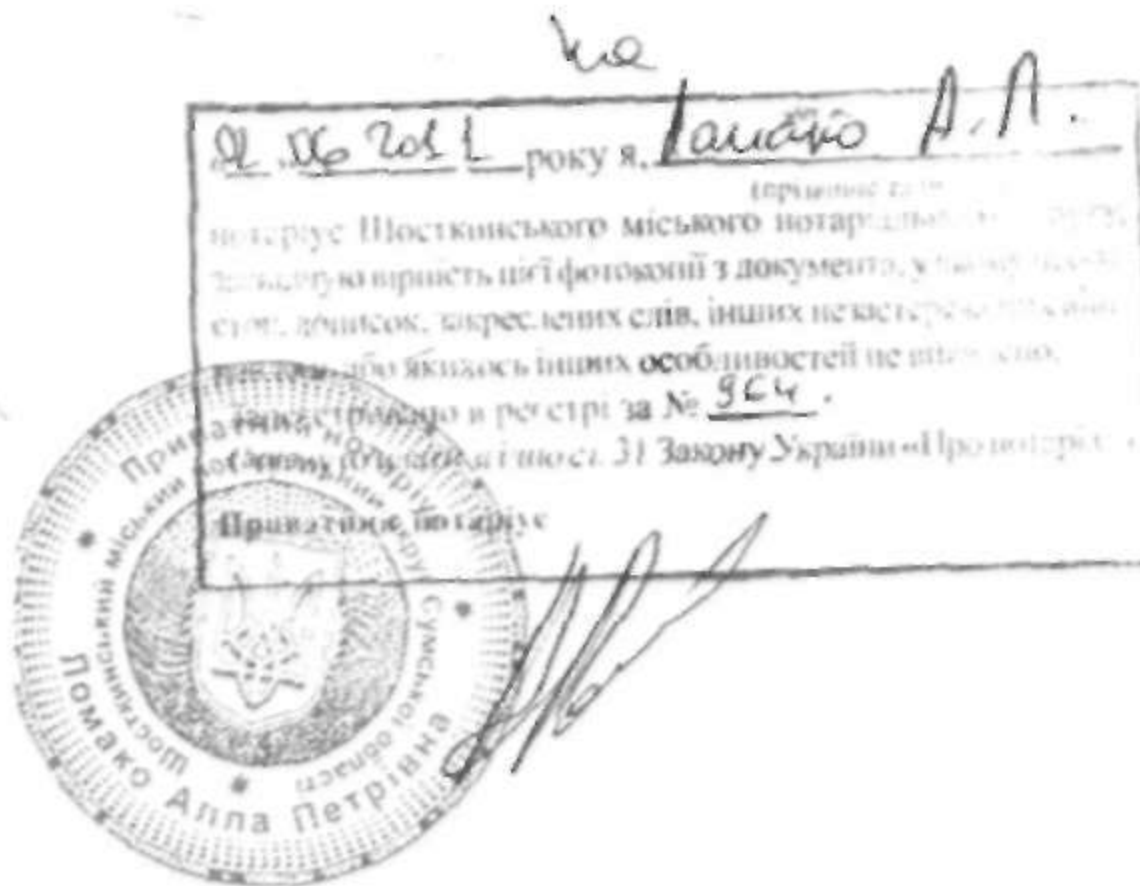 02 06 2011 року я, Ломако А.П.
нотаріус Шосткинського міського
вірність цієї фотокопії з документа, у
дописок, закреслених слів, інших
або якихось інших особливостей не виявлено.
Зареєстровано в реєстрі за № 964.
31 Закону України «Про нотаріат»
Приватний нотаріус
Приватний нотаріус
Шосткинський міський нотаріальний округ Сумської області
Ломако Алла Петрівна